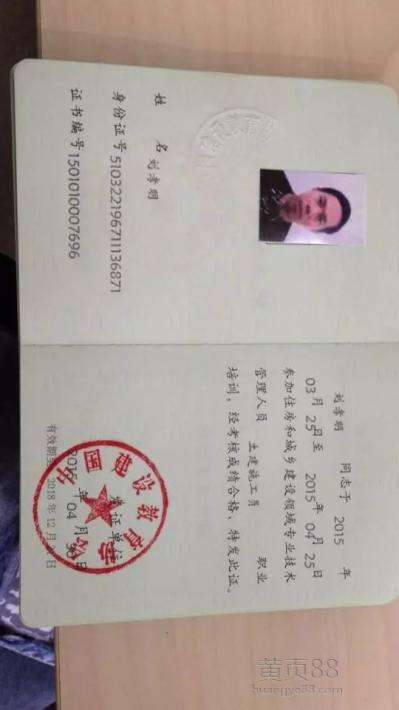 姓 名 刘孝明
身份证号 510322196711136871
证书编号 1501010007696
刘孝明 同志于 2015 年
03 月 25 日至 2015 年 04 月 25 日
参加住房和城乡建设领域专业技术
管理人员 土建施工员 职业
培训，经考核成绩合格，特发此证。
中国建设教育协会
发证单位
年 04 月 30 日
有效期至 2018 年 12 月
黄页88
huangye88.com